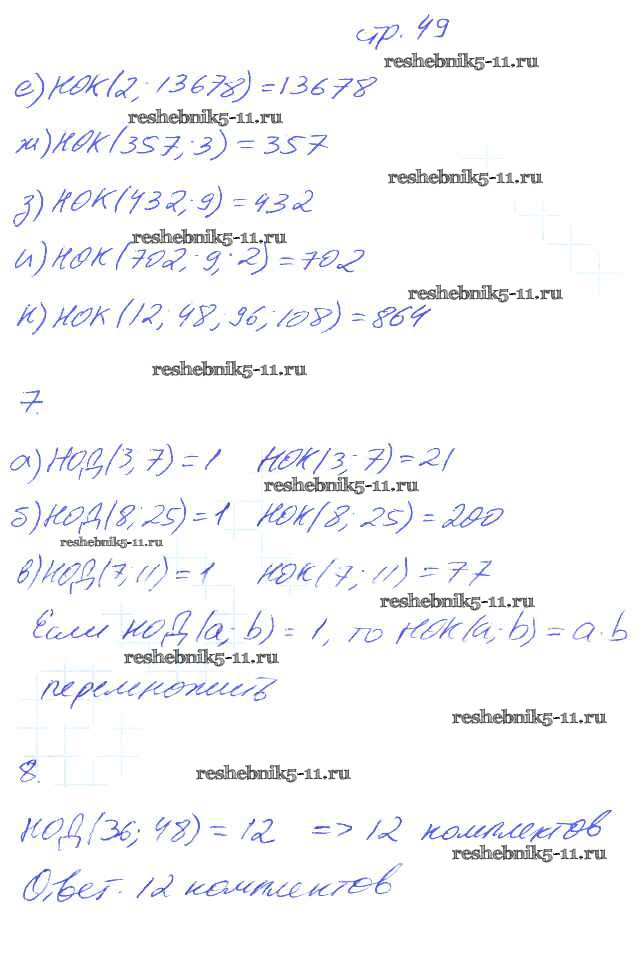 стр. 49
reshebnik5-11.ru
е) НОК(2; 13678) = 13678
reshebnik5-11.ru
ж) НОК(357; 3) = 357
reshebnik5-11.ru
з) НОК(432; 9) = 432
reshebnik5-11.ru
и) НОК(702; 9; 2) = 702
reshebnik5-11.ru
к) НОК(12; 48; 96; 108) = 864
reshebnik5-11.ru
7.
а) НОД(3, 7) = 1 НОК(3; 7) = 21
reshebnik5-11.ru
б) НОД(8; 25) = 1 НОК(8; 25) = 200
reshebnik5-11.ru
в) НОД(7; 11) = 1 НОК(7; 11) = 77
reshebnik5-11.ru
Если НОД(a; b) = 1, то НОК(a; b) = a·b
reshebnik5-11.ru
перемножить
reshebnik5-11.ru
8.
reshebnik5-11.ru
НОД(36; 48) = 12 => 12 комплектов
reshebnik5-11.ru
Ответ. 12 комплектов